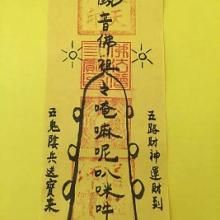 五路財神運財到
觀音佛祖令唵嘛呢叭咪吽
五鬼陰兵送寶來